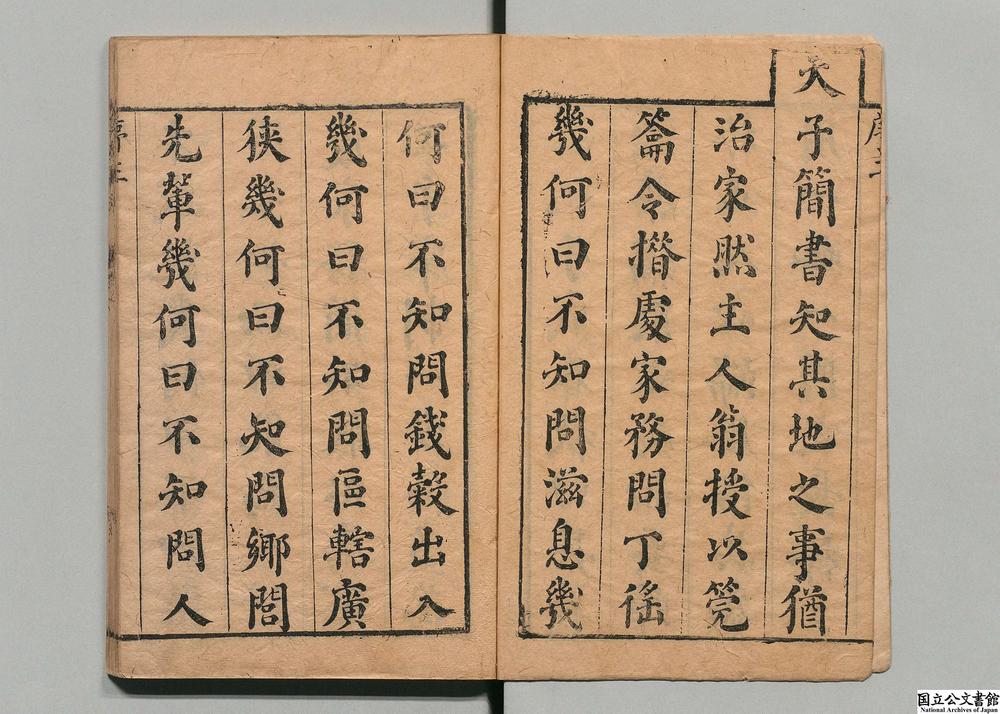 天子簡書知其地之事猶
治家然主人翁授以筦
籥令撍處家務問丁徭
幾何曰不知問滋息幾
何曰不知問錢穀出入
幾何曰不知問區轄廣
狹幾何曰不知問鄉閭
先軰幾何曰不知問人
国立公文書館
National Archives of Japan